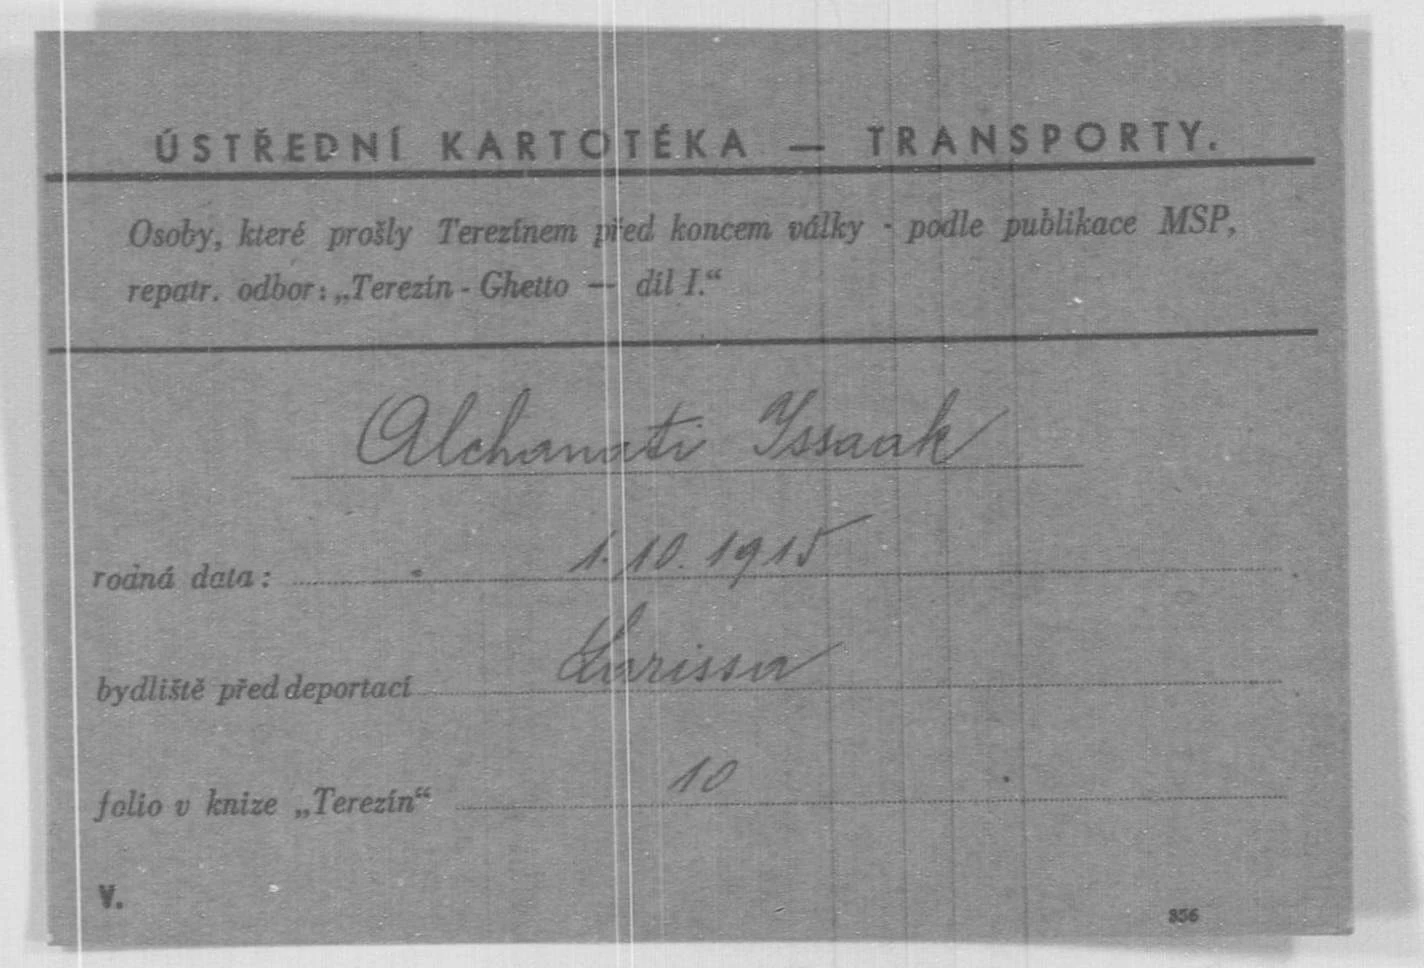 ÚSTŘEDNÍ KARTOTÉKA — TRANSPORTY.
Osoby, které prošly Terezínem před koncem války - podle publikace MSP,
repatr. odbor: „Terezín - Ghetto — díl I.“
Alchanati Yssaak
rodná data: 1. 10. 1915
bydliště před deportací Larissa
folio v knize „Terezín“ 10
V.
856